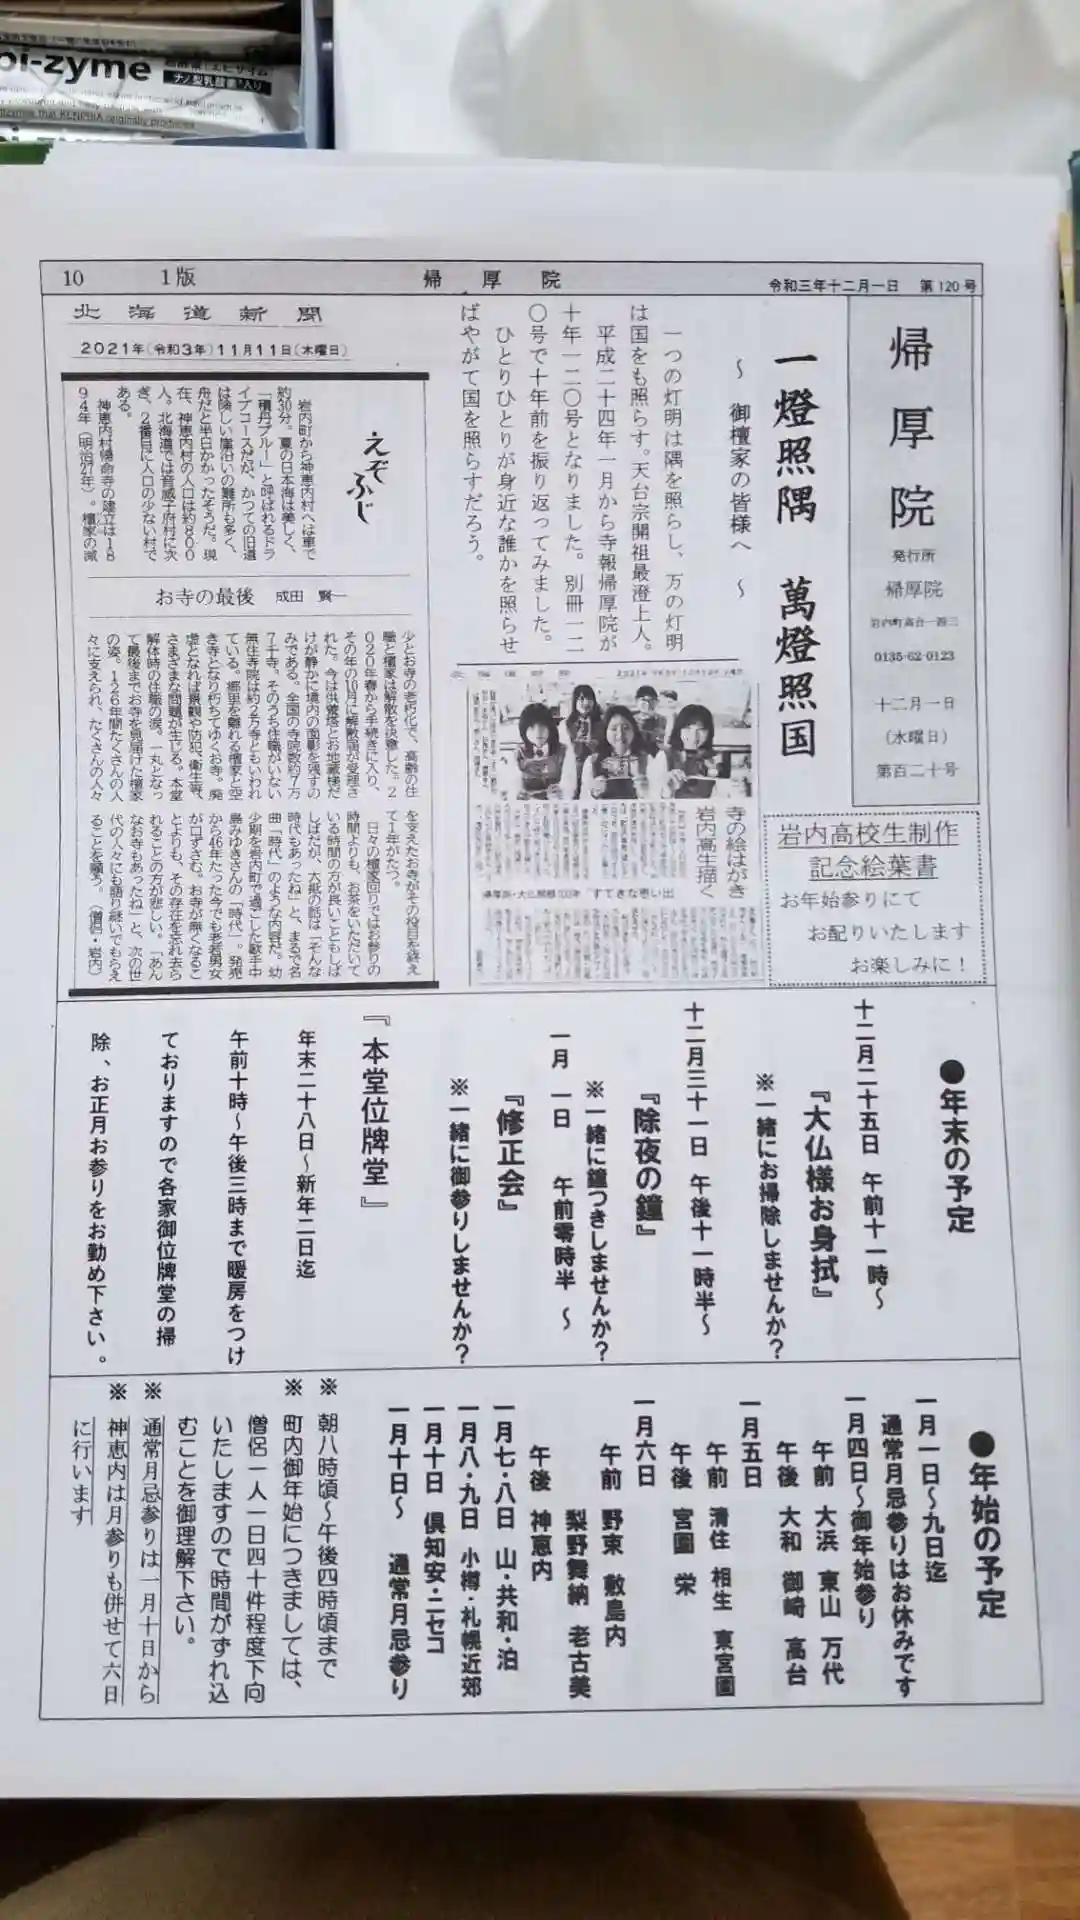 pi-zyme
ナノ型乳酸菌入り
10
1版
帰厚院
令和三年十二月一日 第120号
帰厚院
発行所
帰厚院
岩内町高台一四三
0135-62-0123
十二月一日
(水曜日)
第百二十号
岩内高校生制作
記念絵葉書
お年始参りにて
お配りいたします
お楽しみに!
一燈照隅 萬燈照国
~ 御檀家の皆様へ ~
一つの灯明は隅を照らし、万の灯明
は国をも照らす。天台宗開祖最澄上人。
平成二十四年一月から寺報帰厚院が
十年一二〇号となりました。別冊一二
〇号で十年前を振り返ってみました。
ひとりひとりが身近な誰かを照らせ
ばやがて国を照らすだろう。
寺の絵はがき
岩内高生描く
すてきな思い出
北海道新聞
2021年(令和3年)11月11日(木曜日)
えぞふじ
岩内町から神恵内村へは車で
約30分。夏の日本海は美しく、
「積丹ブルー」と呼ばれるドラ
イブコースだが、かつての旧道
は険しい崖沿いの難所も多く、
舟だと半日かかったそうだ。現
在、神恵内村の人口は約800
人。北海道では音威子府村に次
ぎ、2番目に人口の少ない村で
ある。
神恵内村帰命寺の建立は18
94年(明治27年)。檀家の減
お寺の最後 成田 賢一
少とお寺の老朽化で、高齢の住
職と檀家は解散を決意した。2
020年春から手続きに入り、
その年の10月に解散届が受理さ
れた。今は供養塔とお地蔵様だ
けが静かに境内の面影を残すの
みである。全国の寺院数約7万
7千寺。そのうち住職がいない
無住寺院は約2万寺ともいわれ
ている。郷里を離れる檀家と空
き寺となり朽ちてゆくお寺。廃
虚となれば景観や防犯、衛生等、
さまざまな問題が生じる。本堂
解体時の住職の涙。一丸となっ
て最後までお寺を見届けた檀家
の姿。126年間たくさんの人
々に支えられ、たくさんの人々
を支えたお寺がその役目を終え
て1年がたつ。
日々の檀家回りではお参りの
時間よりも、お茶をいただいて
いる時間の方が長いこともしば
しばだが、大抵の話は「そんな
時代もあったね」と、まるで名
曲「時代」のような内容だ。幼
少期を岩内町で過ごした歌手中
島みゆきさんの「時代」。発売
から46年たった今でも老若男女
が口ずさむ。お寺が無くなるこ
とよりも、その存在を忘れ去ら
れることの方が悲しい。「あん
なお寺もあったね」と、次の世
代の人々にも語り継いでもらえ
ることを願う。(僧侶・岩内)
●年末の予定
十二月二十五日 午前十一時~
『大仏様お身拭』
※一緒にお掃除しませんか?
十二月三十一日 午後十一時半~
『除夜の鐘』
※一緒に鐘つきしませんか?
一月 一日 午前零時半 ~
『修正会』
※一緒に御参りしませんか?
『本堂位牌堂』
年末二十八日~新年二日迄
午前十時~午後三時まで暖房をつけ
ておりますので各家御位牌堂の掃
除、お正月お参りをお勤め下さい。
●年始の予定
一月一日~九日迄
通常月忌参りはお休みです
一月四日~御年始参り
午前 大浜 東山 万代
午後 大和 御崎 高台
一月五日
午前 清住 相生 東宮園
午後 宮園 栄
一月六日
午前 野束 敷島内
梨野舞納 老古美
午後 神恵内
一月七・八日 山・共和・泊
一月八・九日 小樽・札幌近郊
一月十日 倶知安・ニセコ
一月十日~ 通常月忌参り
※ 朝八時頃~午後四時頃まで
※ 町内御年始につきましては、
僧侶一人一日四十件程度下向
いたしますので時間がずれ込
むことを御理解下さい。
※ 通常月忌参りは一月十日から
※ 神恵内は月参りも併せて六日
に行います